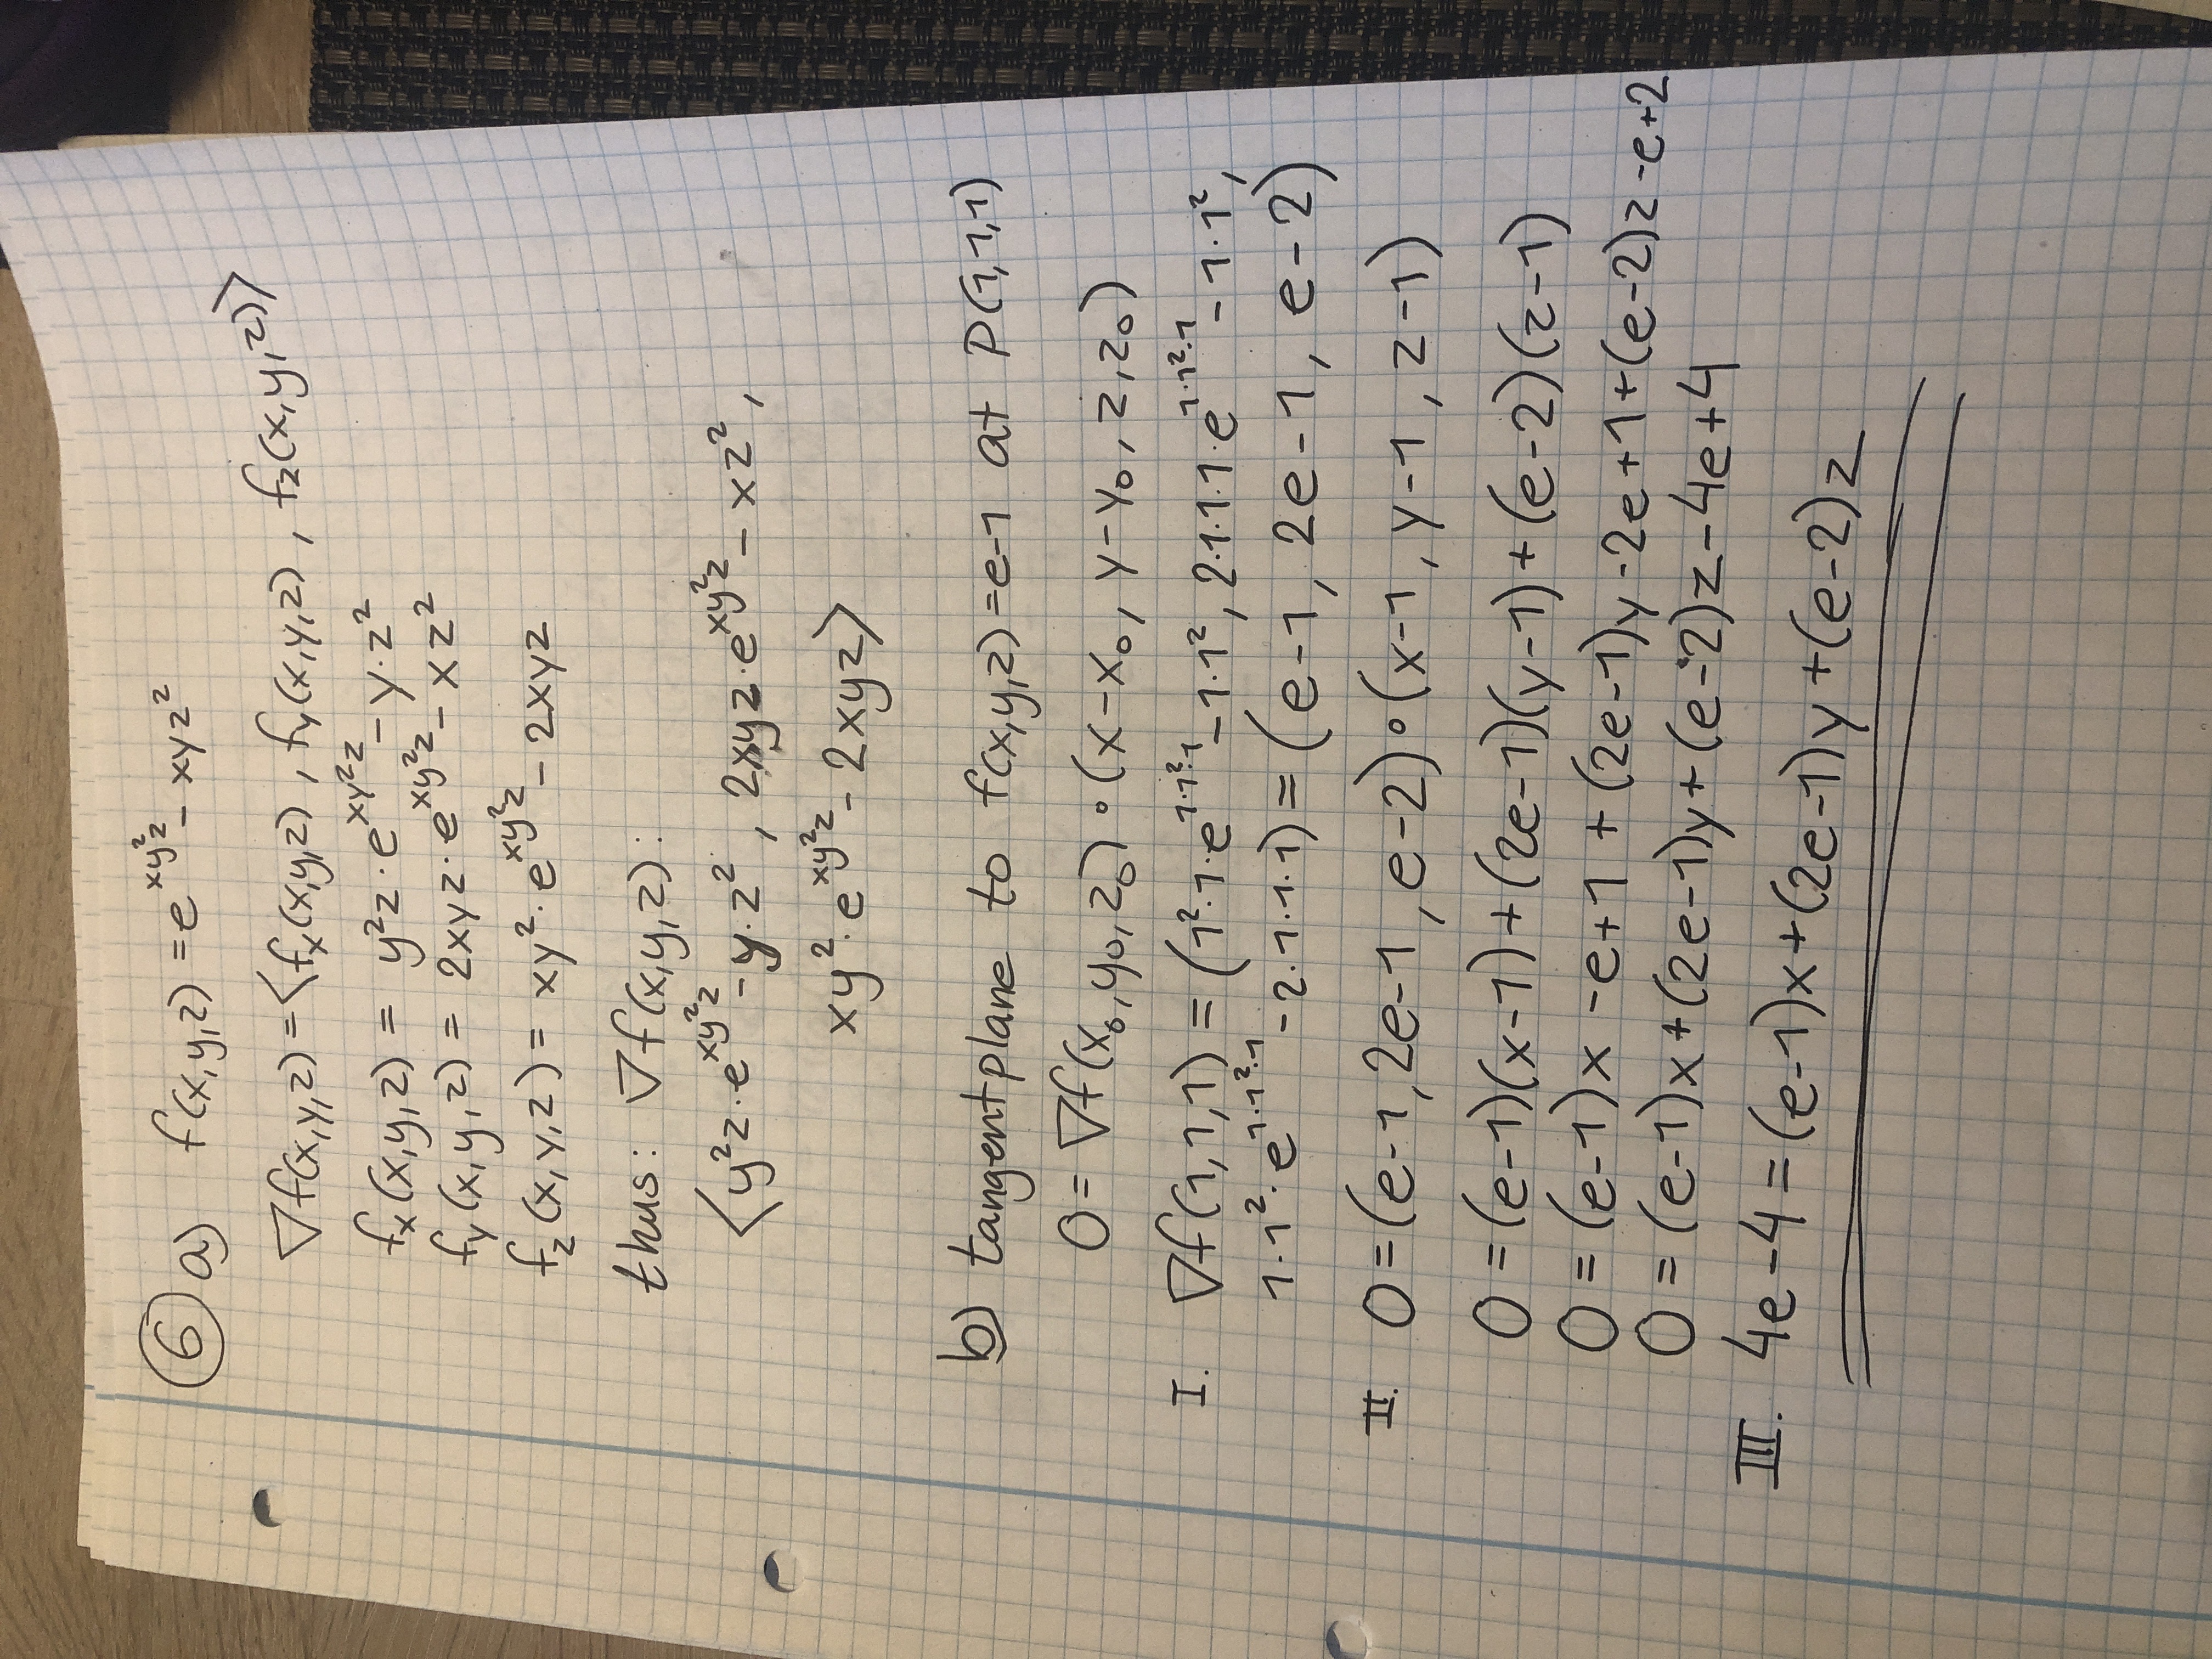 ⑥ a) f(x,y,z) = e^{xy²z} - xyz²
∇f(x,y,z) = ⟨f_x(x,y,z) , f_y(x,y,z) , f_z(x,y,z)⟩
f_x(x,y,z) = y²z · e^{xy²z} - y·z²
f_y(x,y,z) = 2xyz · e^{xy²z} - xz²
f_z(x,y,z) = xy² · e^{xy²z} - 2xyz
thus: ∇f(x,y,z):
⟨y²z · e^{xy²z} - y·z² , 2xyz · e^{xy²z} - xz² ,
xy² · e^{xy²z} - 2xyz⟩
b) tangentplane to f(x,y,z)=e-1 at P(1,1,1)
0 = ∇f(x₀,y₀,z₀) ∘ (x-x₀, y-y₀, z,z₀)
I. ∇f(1,1,1) = (1²·1·e^{1·1²·1} - 1·1², 2·1·1·1·e^{1·1²·1} - 1·1²,
1·1²·e^{1·1²·1} - 2·1·1·1) = (e-1, 2e-1, e-2)
II. 0 = (e-1, 2e-1, e-2) ∘ (x-1, y-1, z-1)
0 = (e-1)(x-1) + (2e-1)(y-1) + (e-2)(z-1)
0 = (e-1)x - e+1 + (2e-1)y - 2e+1 + (e-2)z - e+2
0 = (e-1)x + (2e-1)y + (e-2)z - 4e+4
III. 4e-4 = (e-1)x + (2e-1)y + (e-2)z